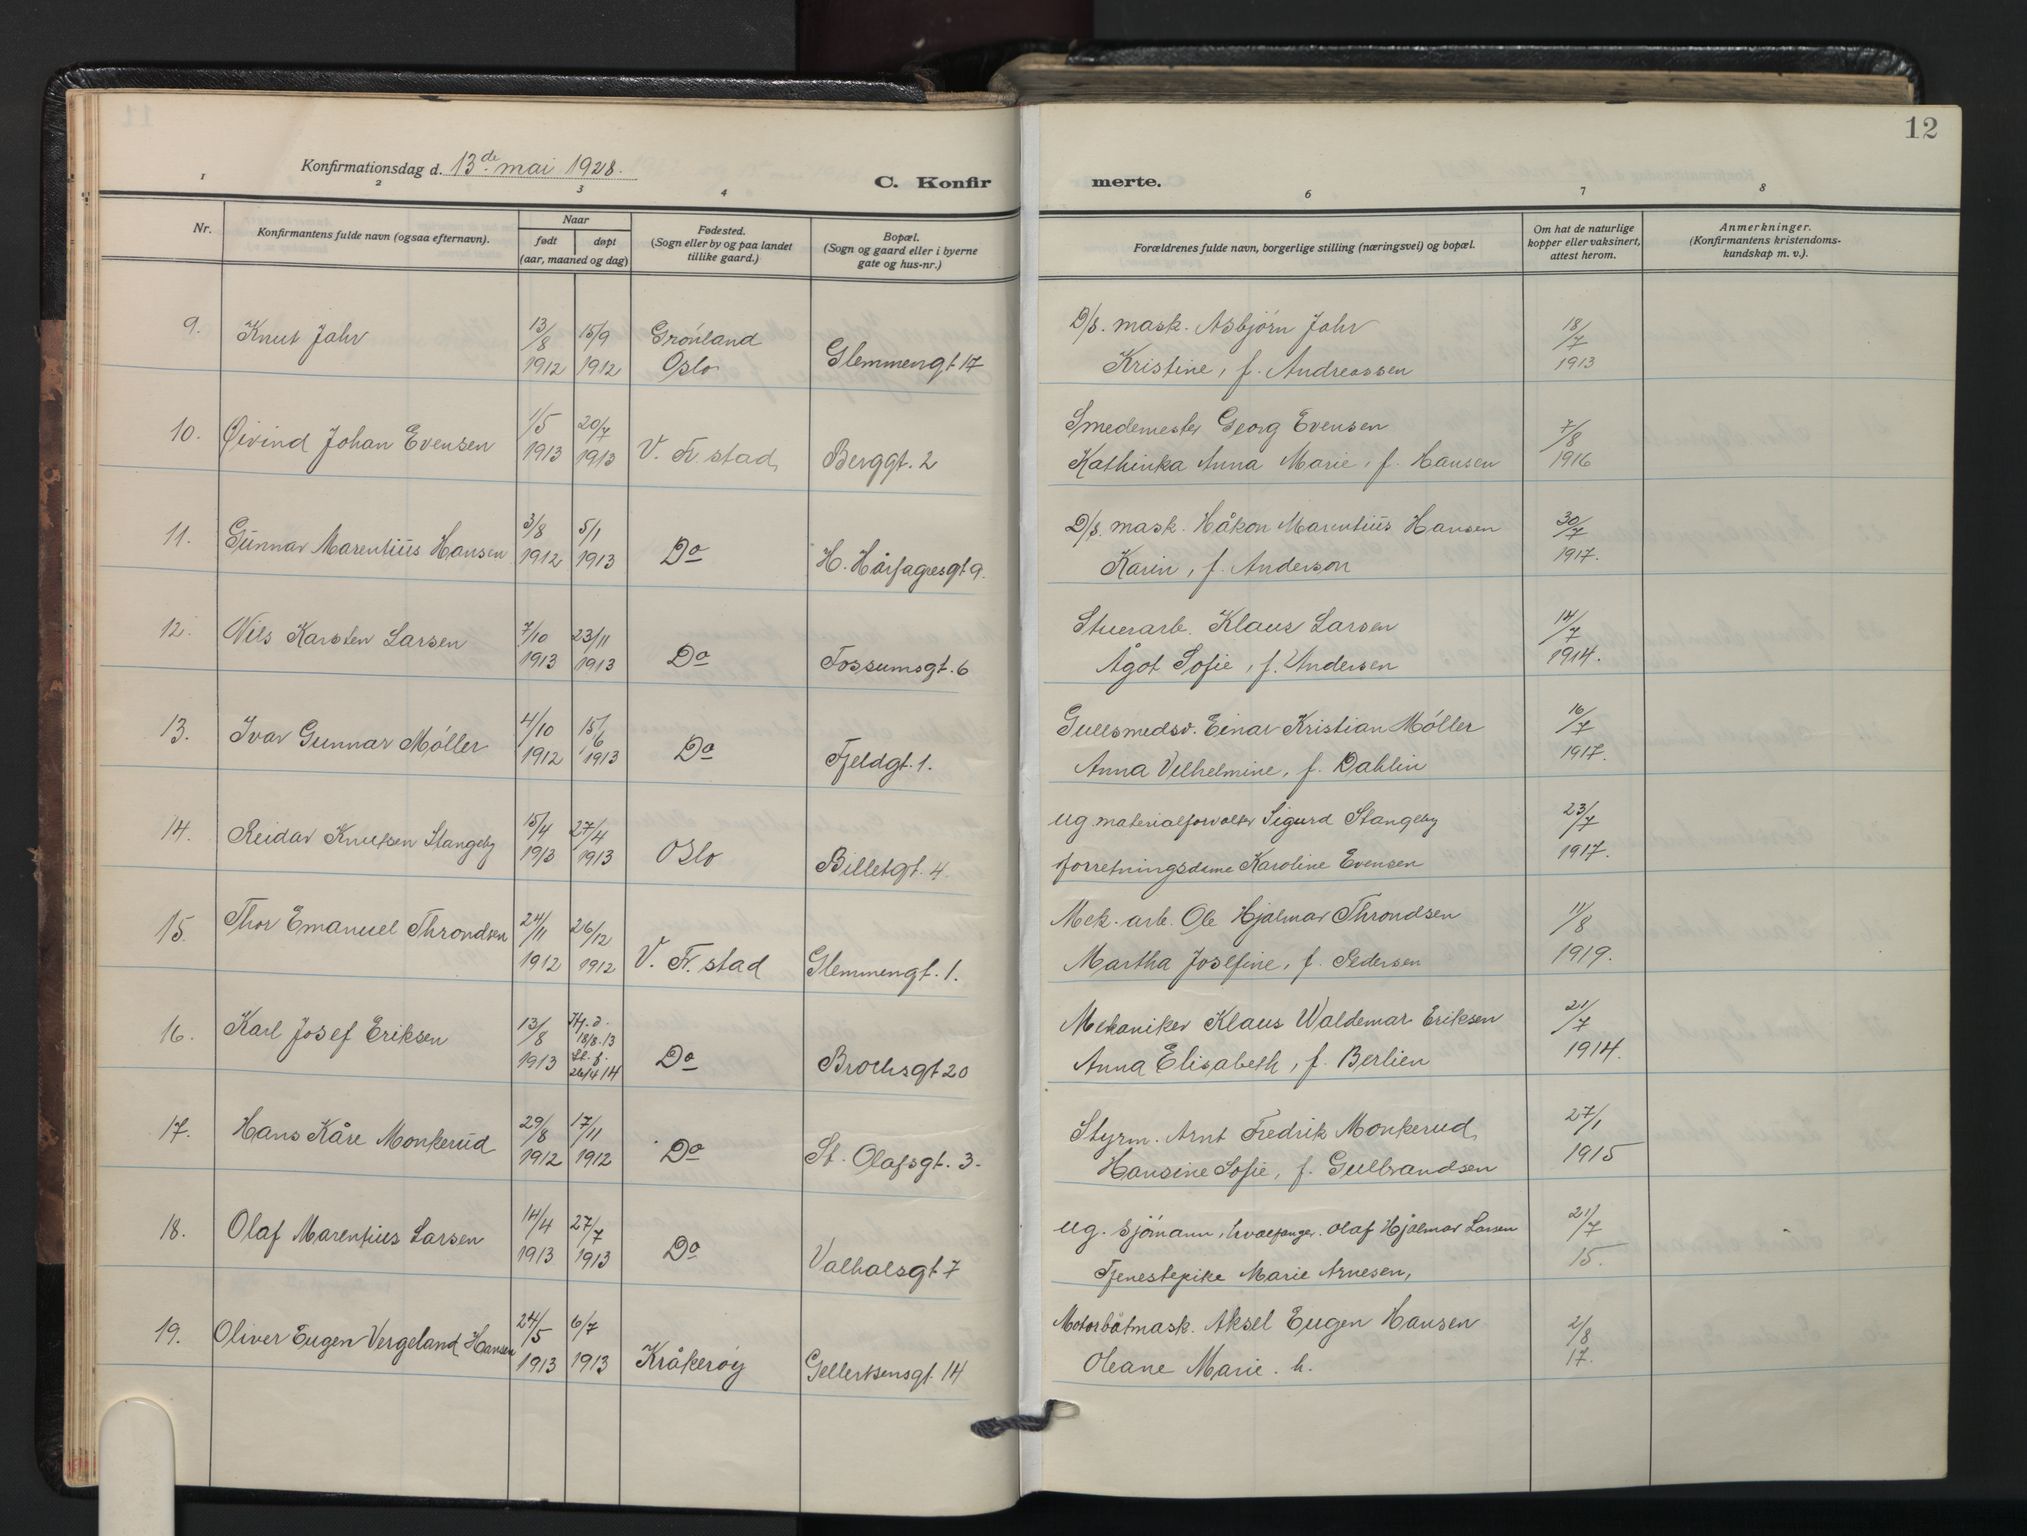 12
Konfirmationsdag d. 13de mai 1928.
C. Konfirmerte.
1 2 3 4 6 7 8
Nr.
Konfirmantens fulde navn (ogsaa efternavn).
Naar
født døpt
(aar, maaned og dag)
Fødested.
(Sogn eller by og paa landet
tillike gaard.)
Bopæl.
(Sogn og gaard eller i byerne
gate og hus-nr.)
Forældrenes fulde navn, borgerlige stilling (næringsvei) og bopæl.
Om hat de naturlige
kopper eller vaksinert,
attest herom.
Anmerkninger.
(Konfirmantens kristendoms-
kundskap m. v.).
9. Knut Jahr 13/8 1912 15/9 1912 Grönland Oslo Glemmengt 17 D/s. mask. Asbjörn Jahr 18/7 1913
Kristine, f. Andreassen
10. Øivind Johan Evensen 1/5 1913 20/7 1913 V. Fr. stad Berggt. 2 Smedemester Georg Evensen 7/8 1916
Kathinka Anna Marie, f. Hansen
11. Gunnar Marentius Hansen 3/8 1912 5/1 1913 Do H. Hårfagresgt 9. D/s. mask. Håkon Marentius Hansen 30/7 1917.
Karin, f. Anderson
12. Nils Karsten Larsen 7/10 1913 23/11 1913 Do Fossumsgt. 6 Stuerarb. Klaus Larsen 14/7 1914.
Ågot Sofie, f. Andersen
13. Ivar Gunnar Møller 4/10 1912 15/6 1913 Do Fjeldgt. 1. Gullsmedsv. Einar Kristian Møller 16/7 1917.
Anna Vilhelmine, f. Dahlin
14. Reidar Knutsen Stangeby 15/4 1913 27/4 1913 Oslo Billetgt. 4. ug. materialforvalter Sigurd Stangeby 23/7 1917.
forretningsdame Karoline Evensen
15. Thor Emanuel Throndsen 24/11 1912 26/12 1912 V. Fr. stad Glemmengt. 1. Mek. arb. Ole Hjalmar Throndsen 11/8 1919.
Martha Josefine, f. Pedersen
16. Karl Josef Eriksen 13/8 1913 Hj. d. 18/8.13 St. f. 26/4 14 Do Brochsgt 20 Mekaniker Klaus Waldemar Eriksen 21/7 1914.
Anna Elisabeth, f. Berlien
17. Hans Kåre Monkerud 29/8 1912 17/11 1912 Do St. Olafsgt. 3. Styrm. Arnt Fredrik Monkerud, 27/1 1915
Hansine Sofie, f. Gulbrandsen
18. Olaf Marentius Larsen 14/4 1913 27/7 1913 Do Valhalsgt 7 ug. sjömann, hvalfanger. Olaf Hjalmar Larsen 21/7 15.
Tjenestepike Marie Arnesen,
19. Oliver Eugen Vergeland Hansen 24/5 1913 6/7 1913 Kråkerøy Gellertsensgt. 14 Motorbåtmask. Aksel Eugen Hansen 2/8 17.
Oleane Marie. h.